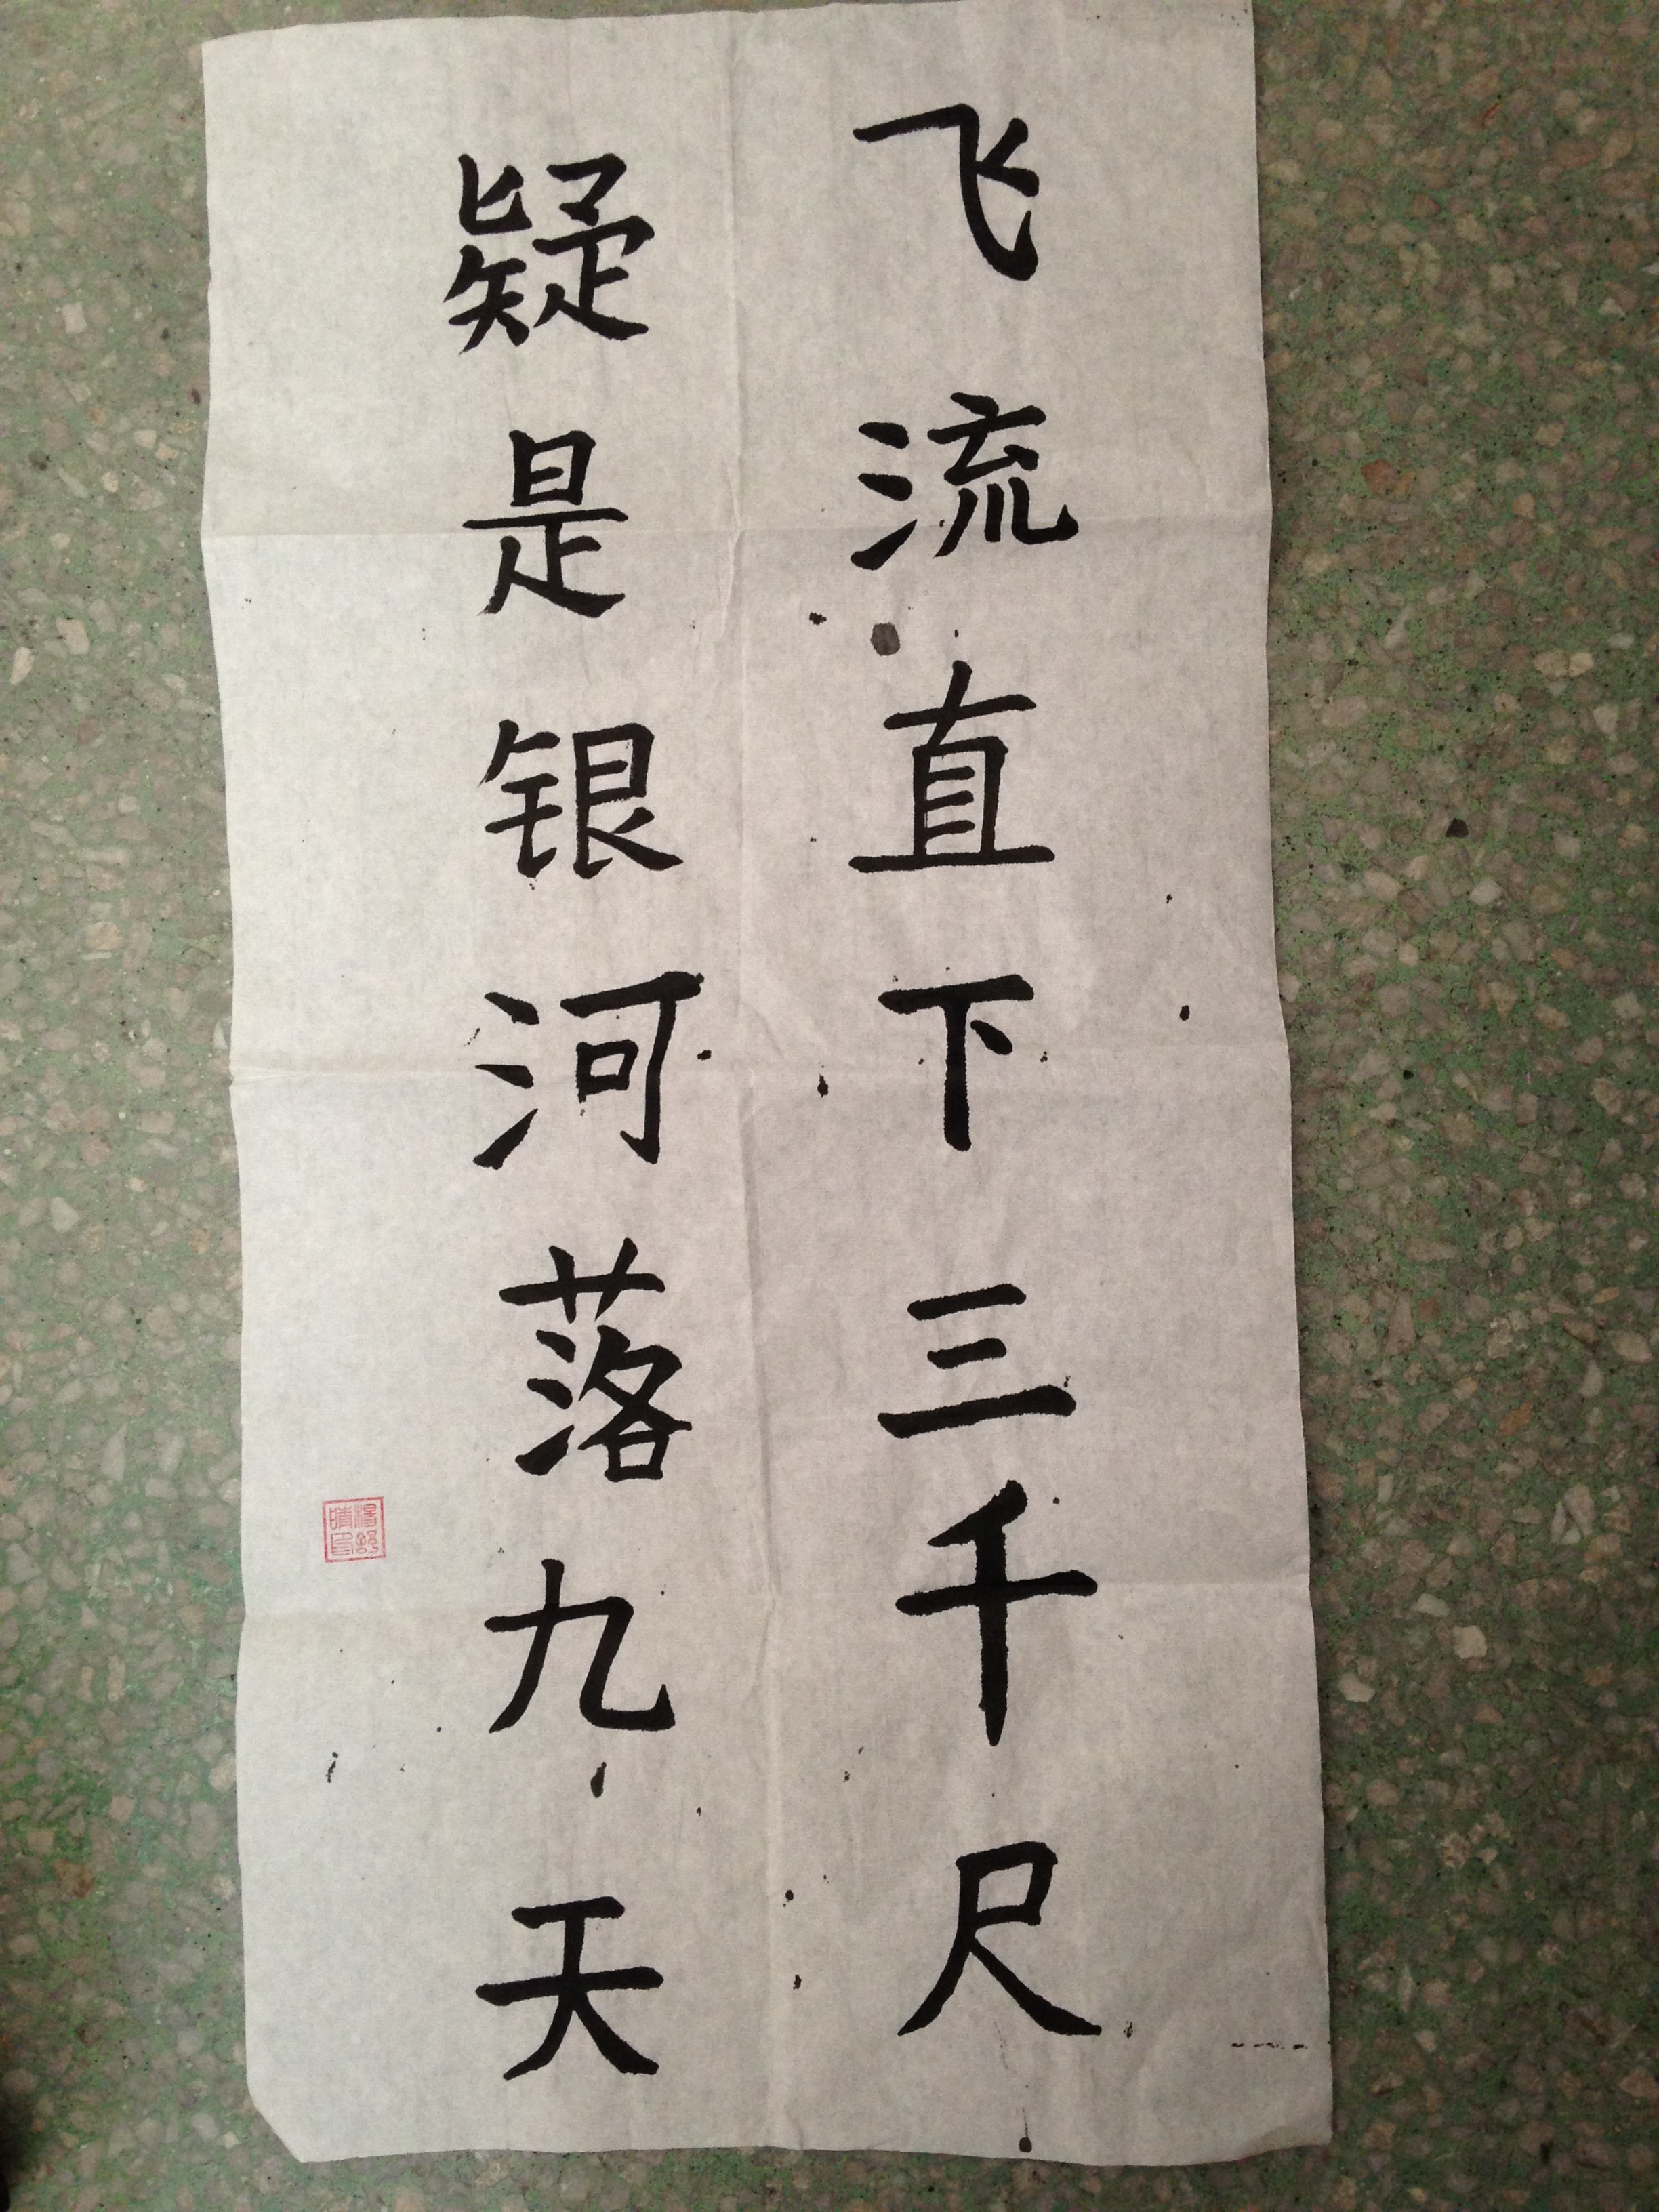 飞流直下三千尺
疑是银河落九天